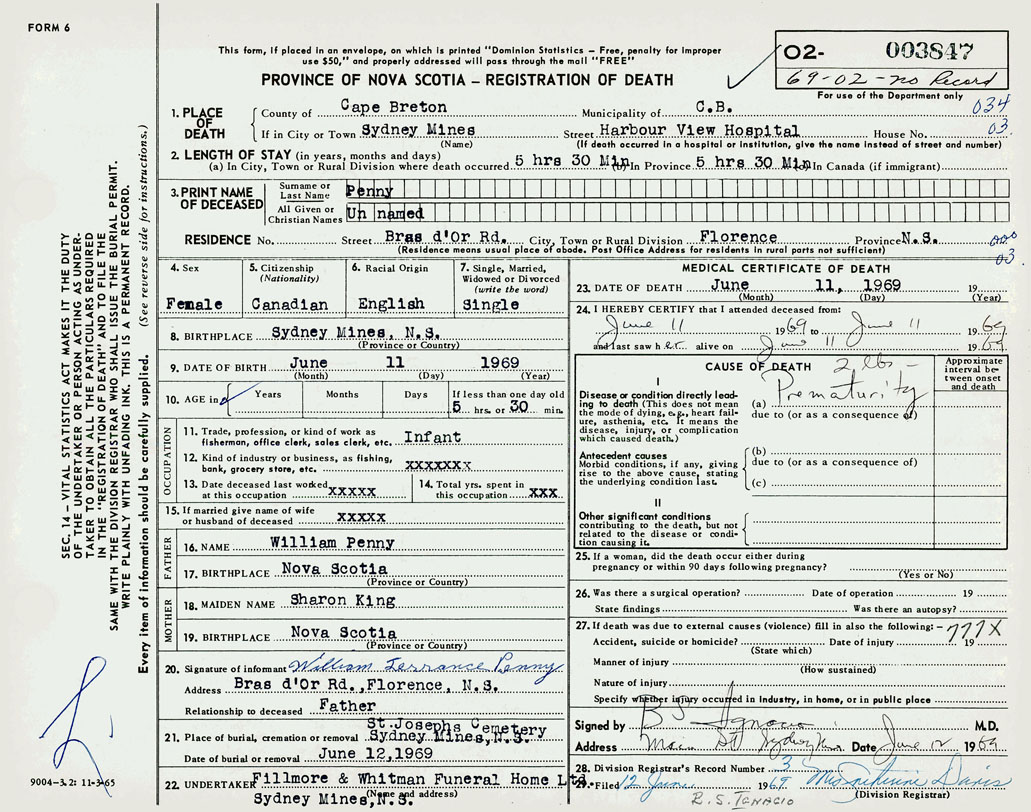 FORM 6
This form, if placed in an envelope, on which is printed "Dominion Statistics – Free, penalty for improper
use $50," and properly addressed will pass through the mail "FREE"
PROVINCE OF NOVA SCOTIA – REGISTRATION OF DEATH
02- 003847
69-02-no Record
For use of the Department only
034
03.
1. PLACE OF DEATH
County of Cape Breton Municipality of C.B.
If in City or Town Sydney Mines Street Harbour View Hospital House No.
(Name) (If death occurred in a hospital or institution, give the name instead of street and number)
2. LENGTH OF STAY (in years, months and days)
(a) In City, Town or Rural Division where death occurred 5 hrs 30 Min (b) In Province 5 hrs 30 Min (c) In Canada (if immigrant)
3. PRINT NAME OF DECEASED
Surname or Last Name Penny
All Given or Christian Names Un named
RESIDENCE No. Street Bras d'Or Rd. City, Town or Rural Division Florence Province N.S.
(Residence means usual place of abode. Post Office Address for residents in rural parts not sufficient)
03.
4. Sex
Female
5. Citizenship
(Nationality)
Canadian
6. Racial Origin
English
7. Single, Married,
Widowed or Divorced
(write the word)
Single
8. BIRTHPLACE Sydney Mines, N.S.
(Province or Country)
9. DATE OF BIRTH June 11 1969
(Month) (Day) (Year)
10. AGE in Years Months Days If less than one day old
5 hrs. or 30 min.
OCCUPATION
11. Trade, profession, or kind of work as
fisherman, office clerk, sales clerk, etc. Infant
12. Kind of industry or business, as fishing,
bank, grocery store, etc. xxxxxxx
13. Date deceased last worked
at this occupation xxxxx
14. Total yrs. spent in
this occupation xxx
15. If married give name of wife
or husband of deceased xxxxx
FATHER
16. NAME William Penny
17. BIRTHPLACE Nova Scotia
(Province or Country)
MOTHER
18. MAIDEN NAME Sharon King
19. BIRTHPLACE Nova Scotia
(Province or Country)
20. Signature of informant William Terrance Penny
Address Bras d'Or Rd., Florence, N.S.
Relationship to deceased Father
St. Josephs Cemetery
21. Place of burial, cremation or removal Sydney Mines, N.S.
Date of burial or removal June 12, 1969
22. UNDERTAKER Fillmore & Whitman Funeral Home Ltd.
(Name and address)
Sydney Mines, N.S.
MEDICAL CERTIFICATE OF DEATH
23. DATE OF DEATH June 11, 1969 19
(Month) (Day) (Year)
24. I HEREBY CERTIFY that I attended deceased from:
June 11 1969 to June 11 1969
and last saw her alive on June 11 1969
CAUSE OF DEATH 2 lbs -
Approximate
interval be-
tween onset
and death
I
Disease or condition directly lead-
ing to death (This does not mean
the mode of dying, e.g., heart fail-
ure, asthenia, etc. It means the
disease, injury, or complication
which caused death.)
(a) Prematurity
due to (or as a consequence of)
Antecedent causes
Morbid conditions, if any, giving
rise to the above cause, stating
the underlying condition last.
(b)
due to (or as a consequence of)
(c)
II
Other significant conditions
contributing to the death, but not
related to the disease or condi-
tion causing it.
25. If a woman, did the death occur either during
pregnancy or within 90 days following pregnancy?
(Yes or No)
26. Was there a surgical operation? Date of operation 19
State findings Was there an autopsy?
27. If death was due to external causes (violence) fill in also the following: – 777X
Accident, suicide or homicide? Date of injury 19
(State which)
Manner of injury
(How sustained)
Nature of injury
Specify whether injury occurred in industry, in home, or in public place
Signed by B S Ignacio M.D.
Address Main St Sydney Mines Date June 12 1969
28. Division Registrar's Record Number 3
29. Filed 12 June 1969
Davis
(Division Registrar)
B.S. IGNACIO
SEC. 14 – VITAL STATISTICS ACT MAKES IT THE DUTY
OF THE UNDERTAKER OR PERSON ACTING AS UNDER-
TAKER TO OBTAIN ALL THE PARTICULARS REQUIRED
IN THE "REGISTRATION OF DEATH" AND TO FILE THE
SAME WITH THE DIVISION REGISTRAR WHO SHALL ISSUE THE BURIAL PERMIT.
WRITE PLAINLY WITH UNFADING INK. THIS IS A PERMANENT RECORD.
Every item of information should be carefully supplied. (See reverse side for instructions.)
9004-3.2: 11-3-65